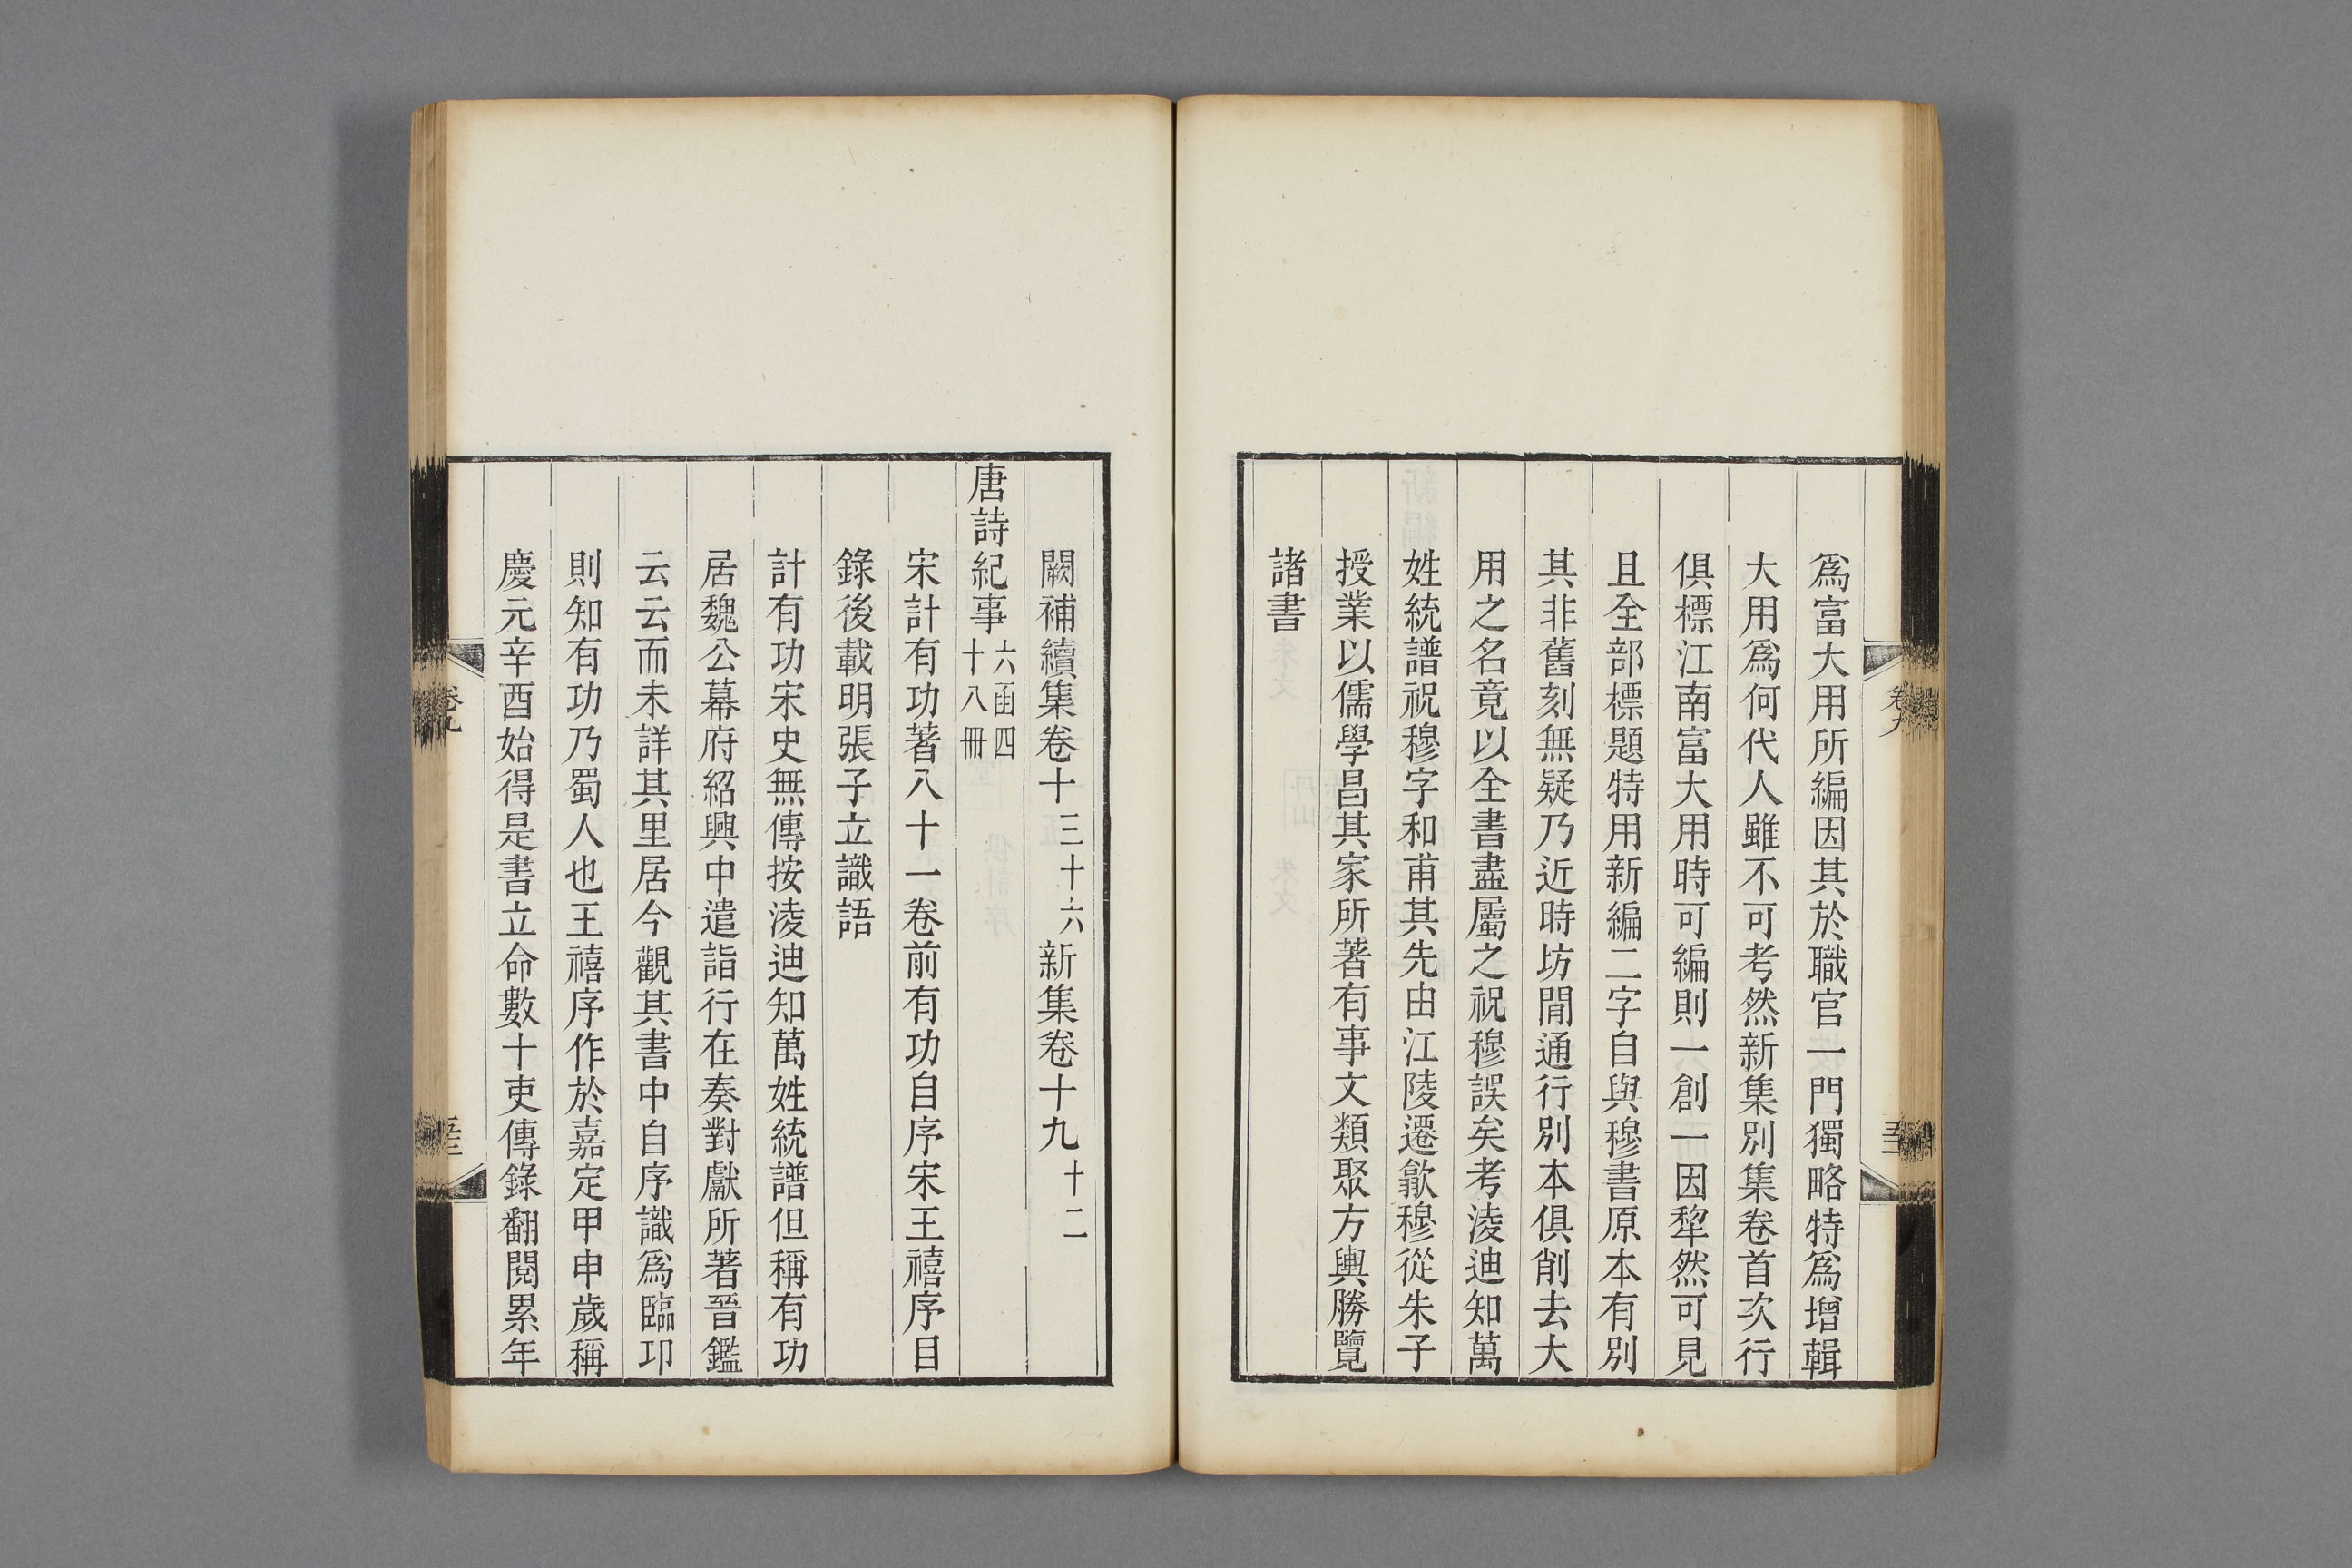 爲富大用所編因其於職官一門獨略特爲增輯
大用爲何代人雖不可考然新集別集卷首次行
俱標江南富大用時可編則一創一因犂然可見
且全部標題特用新編二字自與穆書原本有別
其非舊刻無疑乃近時坊閒通行別本俱削去大
用之名竟以全書盡屬之祝穆誤矣考淩迪知萬
姓統譜祝穆字和甫其先由江陵遷歙穆從朱子
授業以儒學昌其家所著有事文類聚方輿勝覽
諸書
闕補續集卷十三十六新集卷十九十二
唐詩紀事六函四十八冊
宋計有功著八十一卷前有功自序宋王禧序目
錄後載明張子立識語
計有功宋史無傳按淩迪知萬姓統譜但稱有功
居魏公幕府紹興中遣詣行在奏對獻所著晉鑑
云云而未詳其里居今觀其書中自序識爲臨邛
則知有功乃蜀人也王禧序作於嘉定甲申歲稱
慶元辛酉始得是書立命數十吏傳錄翻閱累年
卷九